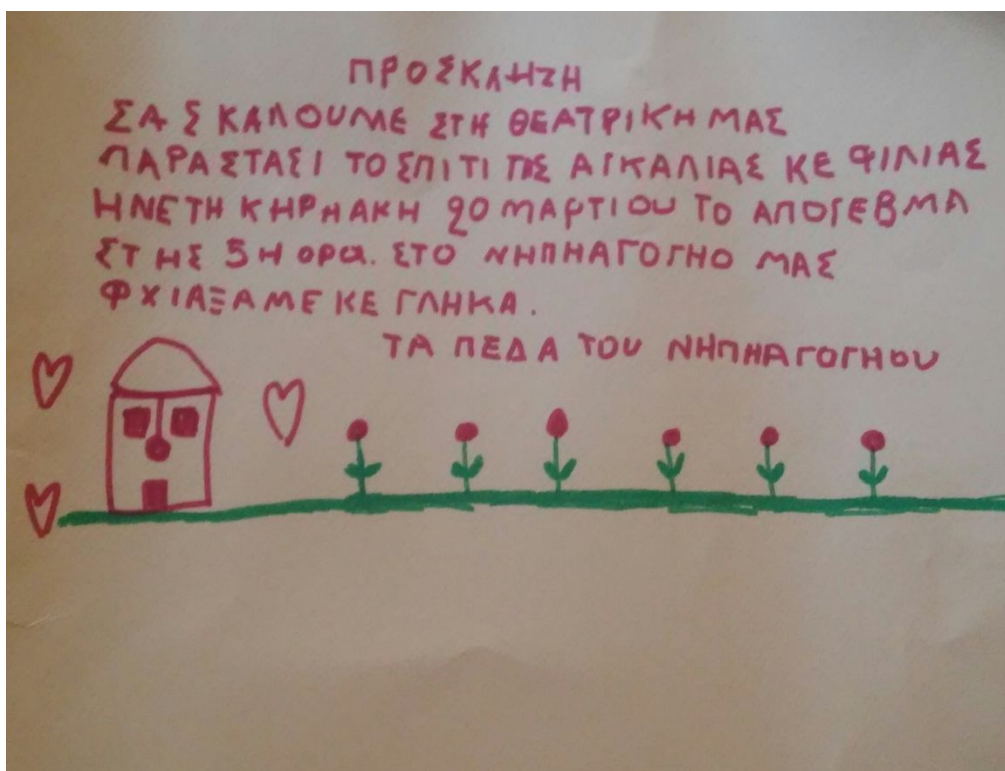 ΠΡΟΣΚΛΗΣΗ
ΣΑΣ ΚΑΛΟΥΜΕ ΣΤΗ ΘΕΑΤΡΙΚΗ ΜΑΣ
ΠΑΡΑΣΤΑΣΙ ΤΟ ΣΠΙΤΙ ΤΙΣ ΑΓΚΑΛΙΑΣ ΚΕ ΦΙΛΙΑΣ
ΗΝΕ ΤΗ ΚΗΡΗΑΚΗ 20 ΜΑΡΤΙΟΥ ΤΟ ΑΠΟΓΕΒΜΑ
ΣΤΗΣ 5 Η ΟΡΑ. ΣΤΟ ΝΗΠΗΑΓΟΓΗΟ ΜΑΣ
ΦΧΙΑΞΑΜΕ ΚΕ ΓΛΗΚΑ.
ΤΑ ΠΕΔΑ ΤΟΥ ΝΗΠΗΑΓΟΓΗΟΥ